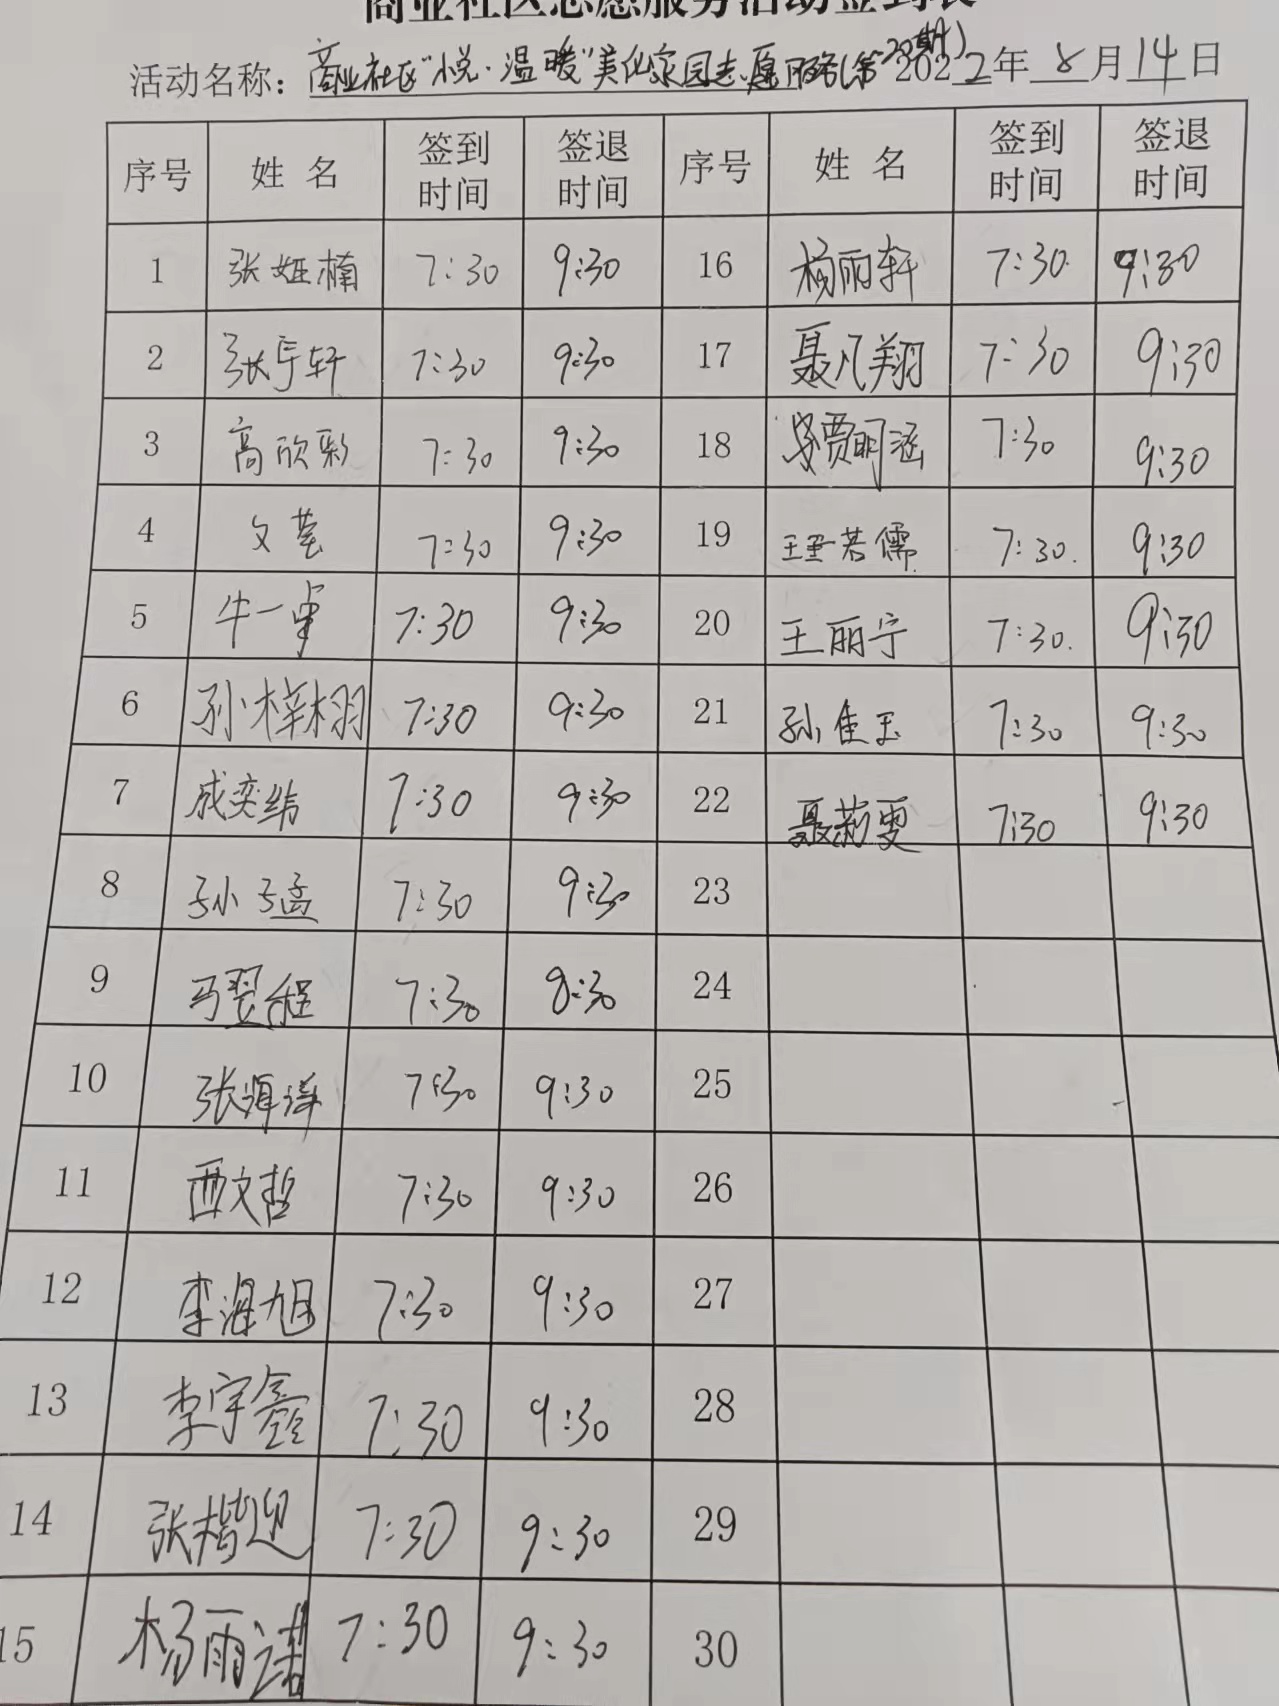 商业社区志愿服务活动签到表
活动名称：商业社区"悦·温暖"美化家园志愿服务(第20期) 2022年8月14日
序号 姓名 签到时间 签退时间 序号 姓名 签到时间 签退时间
1 张姬楠 7:30 9:30 16 杨雨轩 7:30 9:30
2 张宇轩 7:30 9:30 17 聂凡翔 7:30 9:30
3 高欣彩 7:30 9:30 18 贾明涵 7:30 9:30
4 文莹 7:30 9:30 19 王若儒 7:30. 9:30
5 牛一 7:30 9:30 20 王丽宁 7:30. 9:30
6 孙梓栩 7:30 9:30 21 孙佳玉 7:30 9:30
7 成奕纬 7:30 9:30 22 聂莉雯 7:30 9:30
8 孙子孟 7:30 9:30 23
9 马翌程 7:30 8:30 24
10 张 7:30 9:30 25
11 西文哲 7:30 9:30 26
12 李海旭 7:30 9:30 27
13 李宇鑫 7:30 9:30 28
14 张楷迎 7:30 9:30 29
15 杨雨诺 7:30 9:30 30